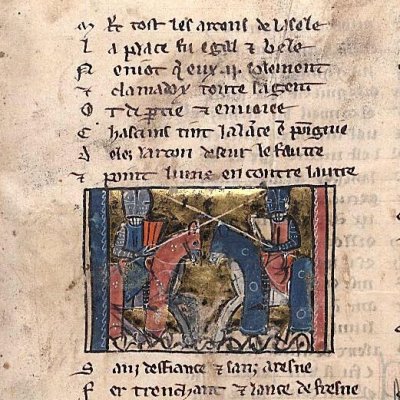 Et tost les arcons de la sele
L a place fu egal & bele
N eniot q̃ eux .ii. solement
& clamadex toute sa gent
O t departie & envoiee
C hascuns tint la lance
larcon desus le fautre
& point luns encontre lautre
S anz desfiance & sanz aresne
F er trenchant & lance de fresne